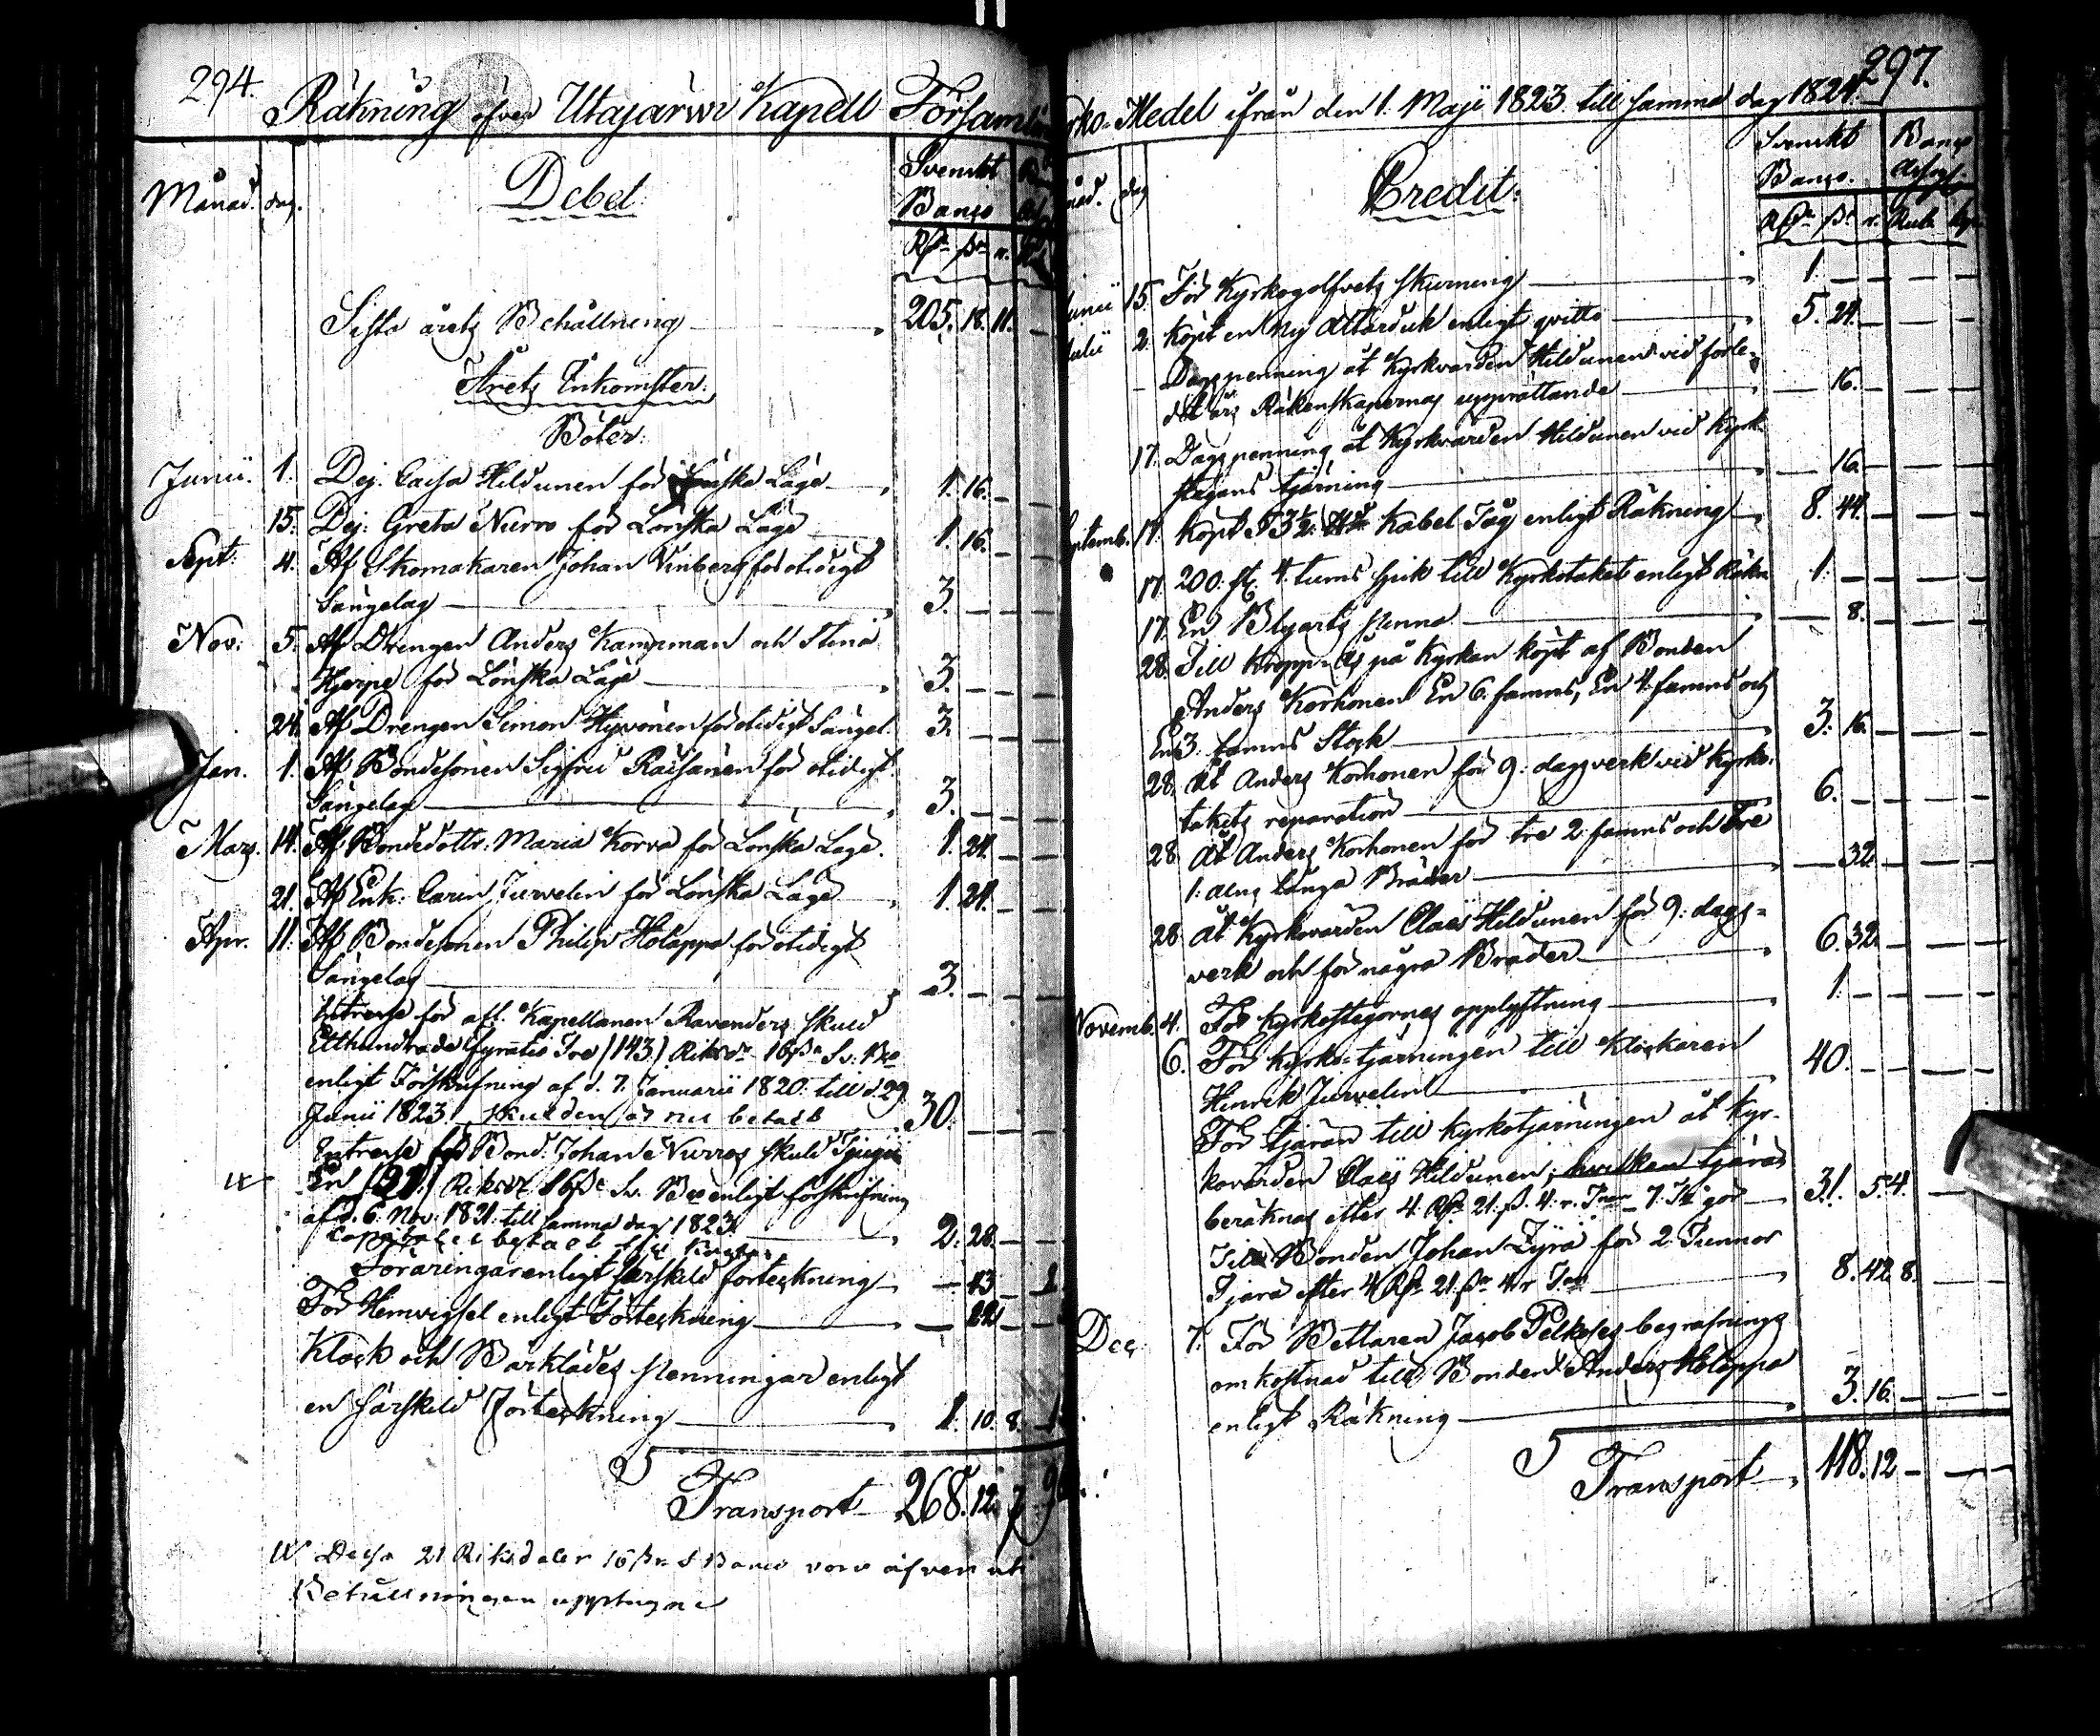 294.
Räkning öfver Utajärwi Kapell Församlin
Månad. dag. Debet: Svenskt Banco
Rdr ßr r.
Sista årets Behållning 205. 18. 11.
Årets Inkomster:
Böter:
Junii. 1. Pig. Caisa Hildunen för Lönska Läge 1. 16. –
15. Pig: Greta Nurro för Lönska Läge 1. 16. –
Sept: 4. Af Skomakaren Johan Vinberg för otidigt
Sängelag 3. – –
Nov: 5. Af Drengen Anders Kampman och Stina
Hjerpe för Lönska Läge 3. – –
24. Af Drengen Simon Hyvönen för otidigt Sängel. 3. – –
Jan. 1. Af Bondesonen Sigfred Räisänen för otidigt
Sängelag 3. – –
Mars. 14. Af Bondedottr. Maria Korva för Lönska Läge. 1. 24. –
21. Af Enk: Carin Jurvelin för Lönska Läge 1. 24. –
Apr. 11. Af Bondesonen Philip Holappa för otidigt
Sängelag 3. – –
Intresse för afl. Kapellanen Ravanders skuld
Etthundrade fyratio Tre (143) Riksdr 16ßr Sv. Bco
enligt Förskrifning af d. 7. Januarii 1820. till d. 29
Junii 1823. skulden är nu betalt 30. – –
Intresse för Bond. Johan Nurros skuld Tjugu
En (21) Riksdr 16ßr Sv. Bco enligt förskrifning
af d. 6. Nov: 1821. till samma dag 1823.
Capitalet betalt till Kassan 2. 28. –
Föräringar enligt särskild forteckning – 43 –
För Hemvigsel enligt Förteckning –
Klock och Bårklädes penningar enligt
en särskild Förteckning 1. 10. 8.
Transport 268. 12. 7
Dessa 21 Riksdaler 16 ßr S Banco voro äfven uti
Behållningen upptagne
297.
rko-Medel ifrån den 1. Maji 1823. till samma dag 1824.
nad. dag Credit: Svenskt Banco. Banco Assig.
Rdr ßr r. Rub. kop.
unii 15. För Kyrkogolfvets skurning 1. – – – –
ulii 2. Köpt en ny Altarduk enligt qvitto 5. 24. – – –
– Dagspenning åt Kyrkvärden Hildunen vid förle-
det års Räkenskapernas upprättande – 16. – – –
17. Dagspenning åt Kyrkvärden Hildunen vid Kyrk-
stegans tjärning – 16. – – –
eptemb. 17. Köpt 3½ Kabel Tåg enligt Räkning 8. 44. – – –
17. 200. st. 4. tums spik till Kyrkotaket enligt Räkn 1. – – – –
17. En Blyarts penna – 8. – – –
28. Till Kropp-ås på Kyrkan köpt af Bonden
Anders Korhonen En 6. famns, En 4. famns och
En 3. famns Stock 3. 16. – – –
28. åt Anders Korhonen för 9: dagsverk vid Kyrko-
takets reparation 6. – – – –
28. åt Anders Korhonen för tre 2. famns och Tre
1. alns långa Bräder – 32 – – –
28 åt Kyrkovärden Claës Hildunen för 9: dags-
verk och för några Bräder 6. 32. – – –
Novemb. 4. För Kyrkostegornes opplyftning 1. – – – –
6. För Kyrko-tjärningen till Klockaren
Henrik Jurvelin 40. – – – –
För tjäran till Kyrkotjärningen åt Kyr-
kovärden Claës Hildunen, hvilken tjära
beräknas efter 4. Rdr 21. ß. 4. r. Tnan 7. Tr gör 31. 5. 4. – –
Till Bonden Johan Zyrä för 2. Tunnor
Tjära efter 4 Rdr 21. ßr 4 r Tnan 8. 42. 8. – –
Dec. 7. För Bettlaren Jacob Pelkoses begrafnings
omkostnad till Bonden Anders Holappa
enligt Räkning 3. 16. – – –
Transport 118. 12 – – –